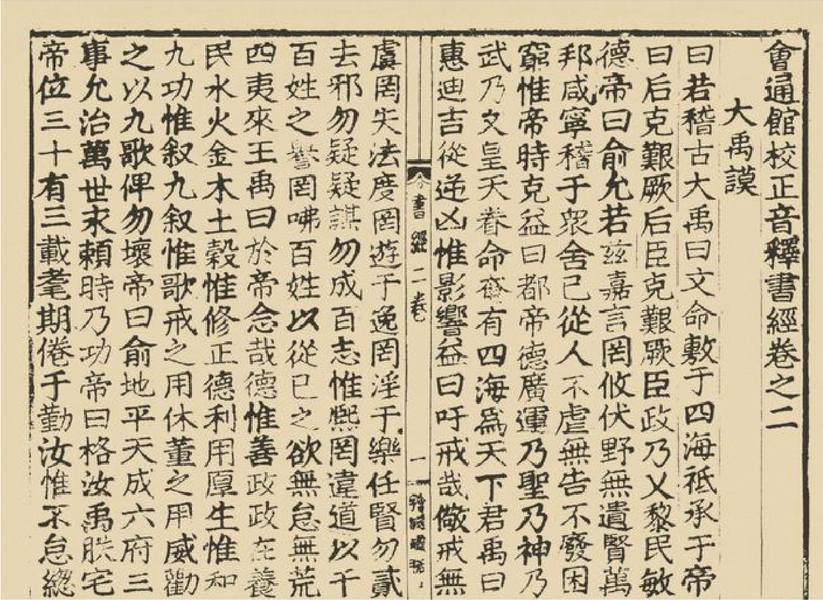 會通館校正音釋書經卷之二
大禹謨
曰若稽古大禹曰文命敷于四海祗承于帝
曰后克艱厥后臣克艱厥臣政乃乂黎民敏
德帝曰俞允若茲嘉言罔攸伏野無遺賢萬
邦咸寧稽于衆舍己從人不虐無告不廢困
窮惟帝時克益曰都帝德廣運乃聖乃神乃
武乃文皇天眷命奄有四海為天下君禹曰
惠迪吉從逆凶惟影響益曰吁戒哉儆戒無
書經二卷
一
虞罔失法度罔遊于逸罔淫于樂任賢勿貳
去邪勿疑疑謀勿成百志惟熙罔違道以干
百姓之譽罔咈百姓以從已之欲無怠無荒
四夷來王禹曰於帝念哉德惟善政政在養
民水火金木土穀惟修正德利用厚生惟和
九功惟叙九叙惟歌戒之用休董之用威勸
之以九歌俾勿壞帝曰俞地平天成六府三
事允治萬世永賴時乃功帝曰格汝禹朕宅
帝位三十有三載耄期倦于勤汝惟不怠緫